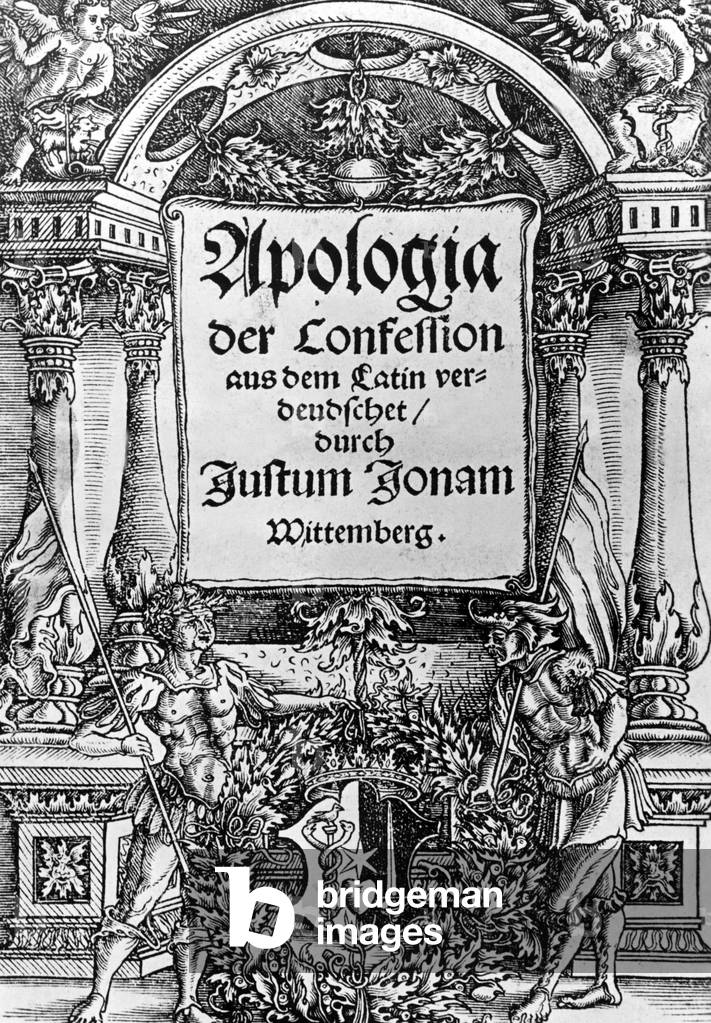 Apologia
der Confession
aus dem Latin ver=
deudschet /
durch
Justum Jonam
Wittemberg.
b bridgeman
images